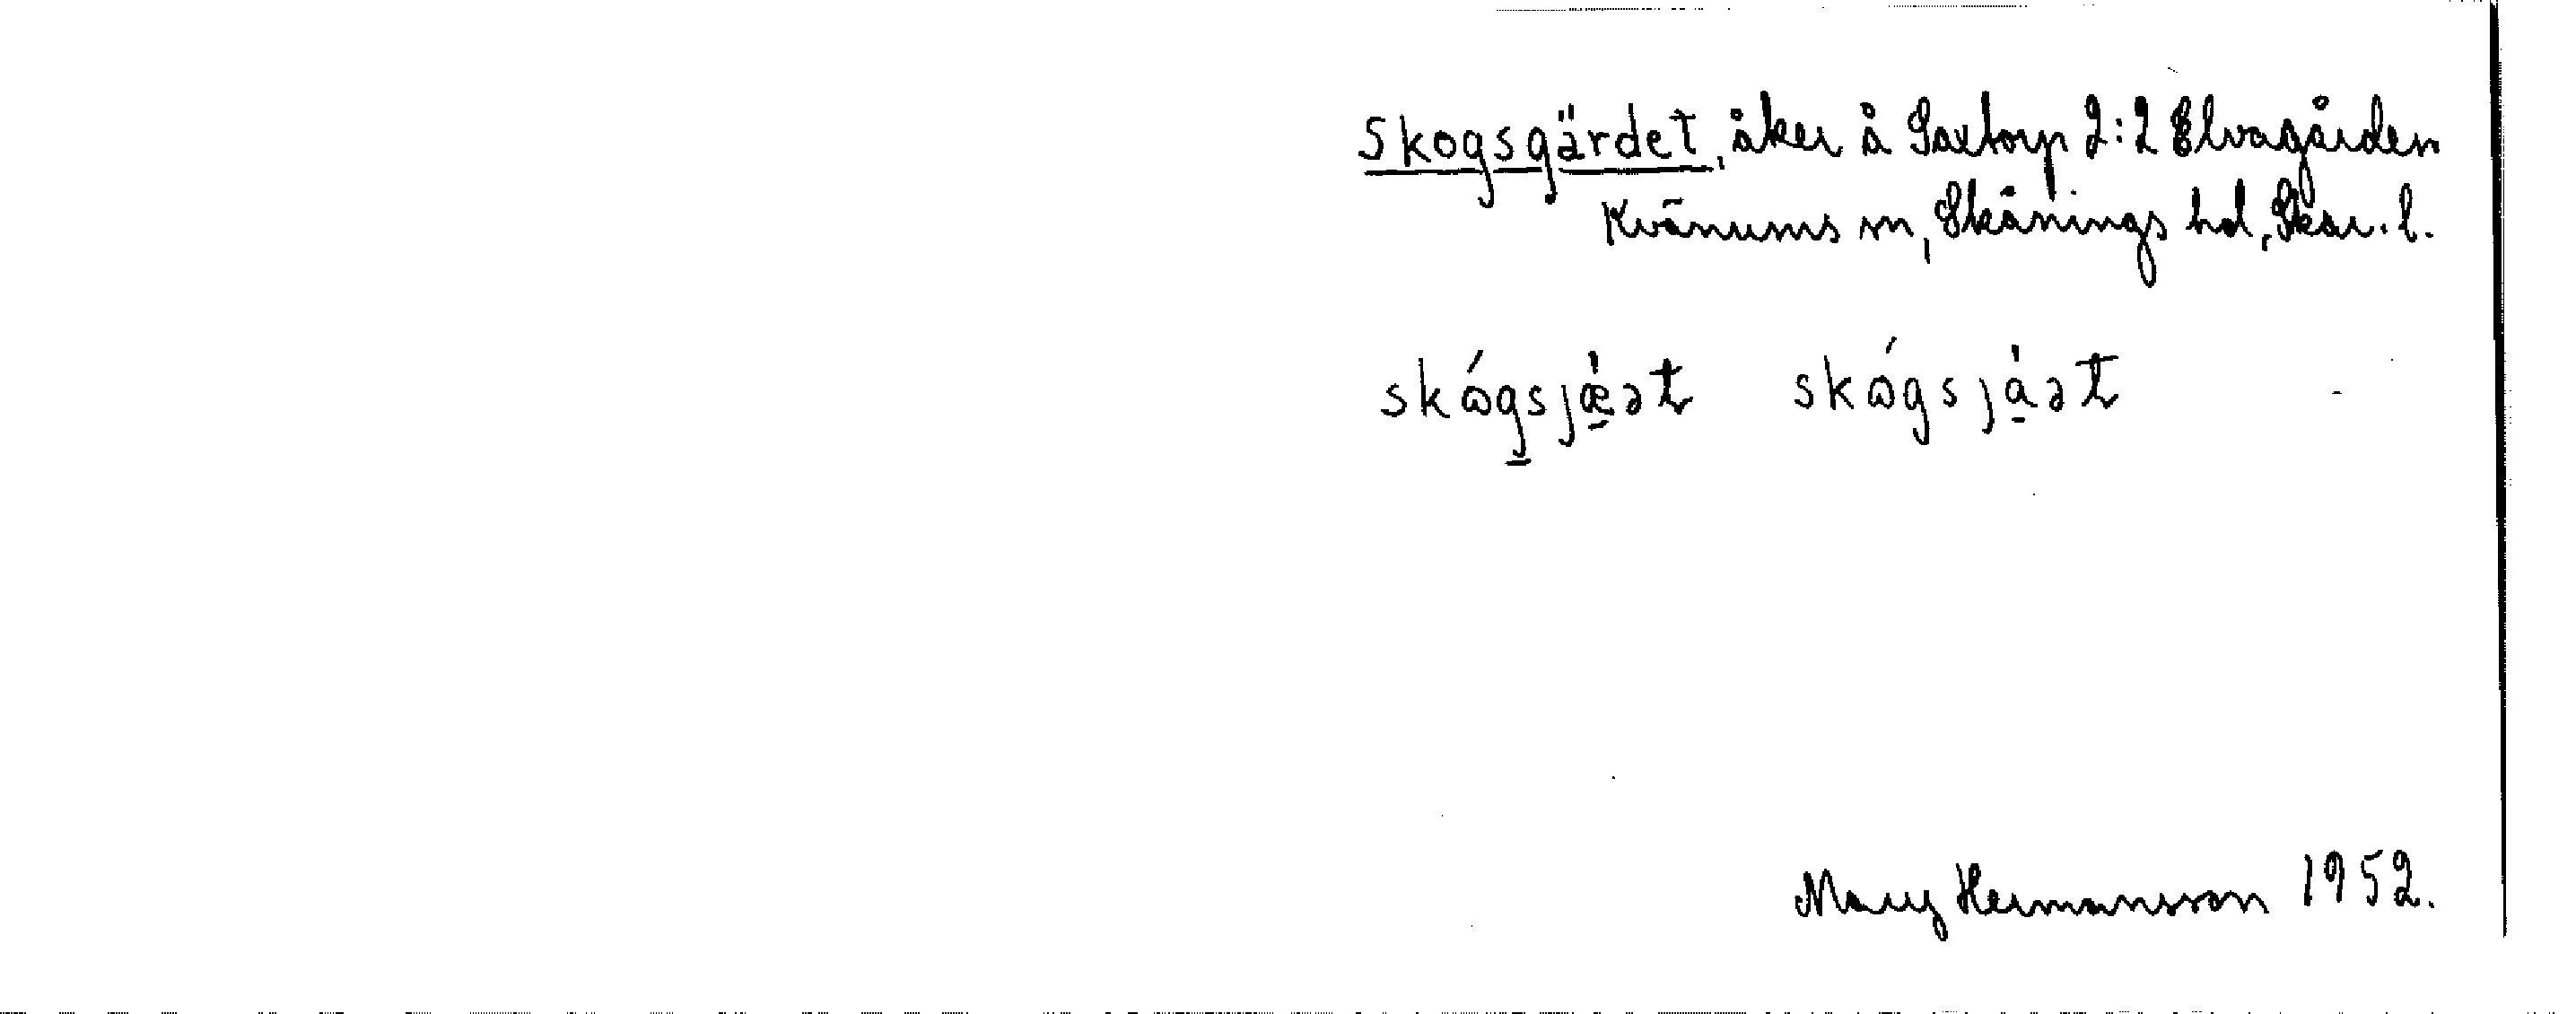 Skogsgärdet, åker å Saxtorp 2:2 Elvagården
Kvänums sn, Skånings hd, Skar. l.
skɷ́gsjæ̀ət skɷ́gsjàət
Mary Hermansson 1952.